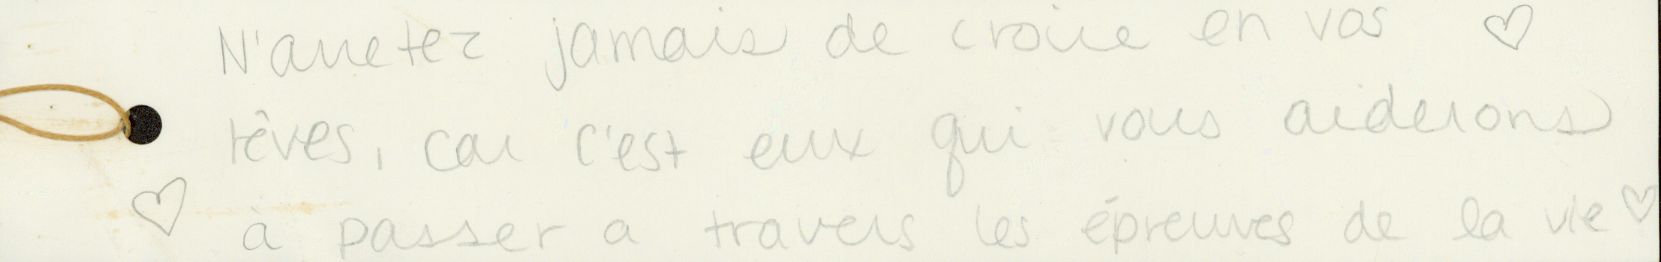 N'arretez jamais de croire en vos ♡
rêves, car c'est eux qui vous aiderons
♡ à passer a travers les épreuves de la vie ♡